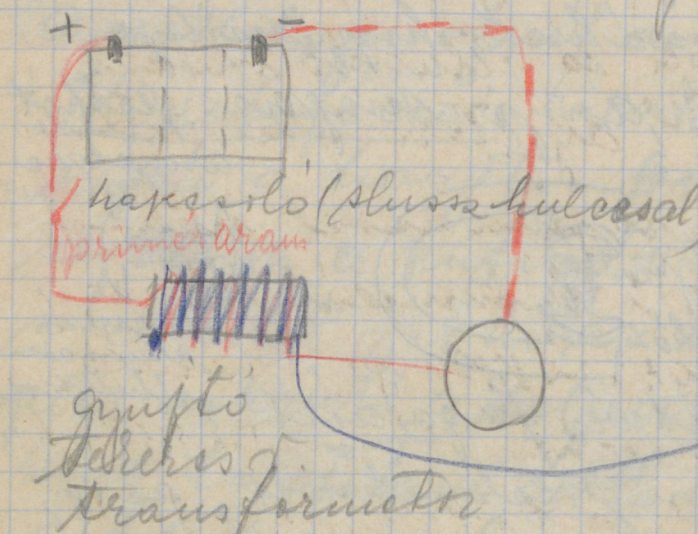 + −
kapcsoló (slusszkulccsal
primér áram
gyujtó
tekercs v.
transformátor